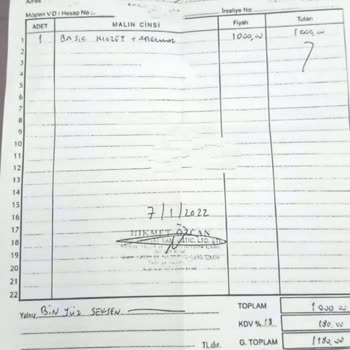 Müşteri V.D / Hesap No :...
İrsaliye No:
ADET MALIN CİNSİ Fiyatı Tutarı
1 1 BASIC KLOZET + 1000,00 1000,00
2
3
4
5
6
7
8
9
10
11
12
13
14
15
16
17
18
19
20
21
22
7/1/2022
HİKMET ÖZCAN
TİC. LTD. ŞTİ.
Yalnız BİN YÜZ SEKSEN
TL.dır.
TOPLAM 1000,00
KDV % 18 180,00
G. TOPLAM 1180,00